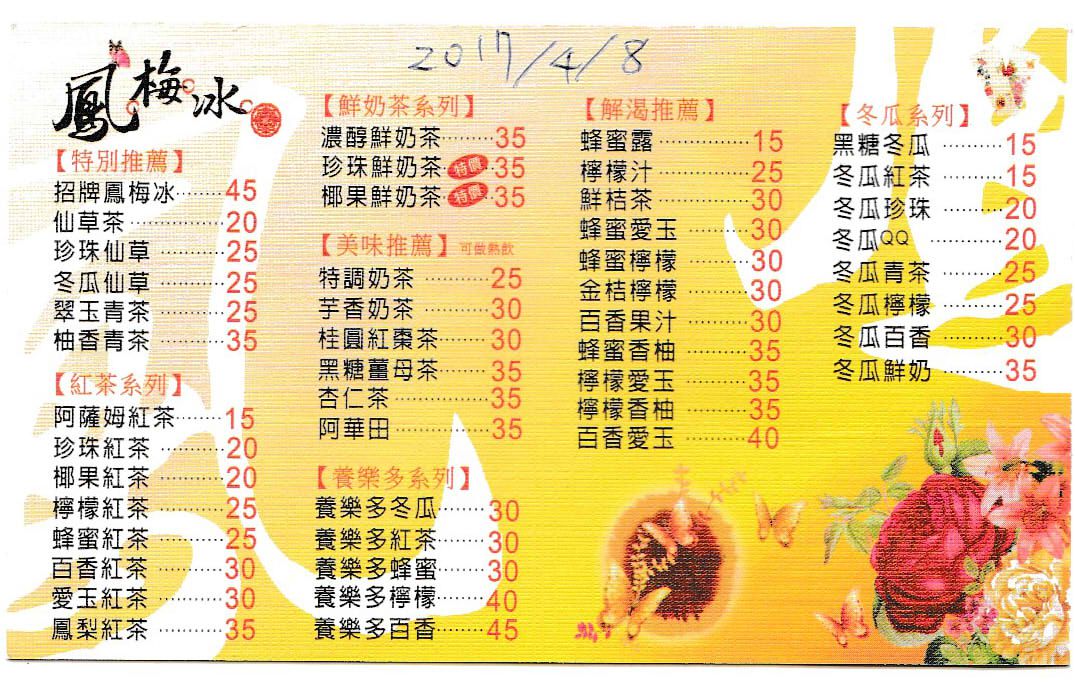 2017/4/8
鳳梅冰
【特別推薦】
招牌鳳梅冰……45
仙草茶……20
珍珠仙草……25
冬瓜仙草……25
翠玉青茶……25
柚香青茶……35
【紅茶系列】
阿薩姆紅茶……15
珍珠紅茶……20
椰果紅茶……20
檸檬紅茶……25
蜂蜜紅茶……25
百香紅茶……30
愛玉紅茶……30
鳳梨紅茶……35
【鮮奶茶系列】
濃醇鮮奶茶……35
珍珠鮮奶茶 特價 35
椰果鮮奶茶 特價 35
【美味推薦】可做熱飲
特調奶茶……25
芋香奶茶……30
桂圓紅棗茶……30
黑糖薑母茶……35
杏仁茶……35
阿華田……35
【養樂多系列】
養樂多冬瓜……30
養樂多紅茶……30
養樂多蜂蜜……30
養樂多檸檬……40
養樂多百香……45
【解渴推薦】
蜂蜜露……15
檸檬汁……25
鮮桔茶……30
蜂蜜愛玉……30
蜂蜜檸檬……30
金桔檸檬……30
百香果汁……30
蜂蜜香柚……35
檸檬愛玉……35
檸檬香柚……35
百香愛玉……40
【冬瓜系列】
黑糖冬瓜……15
冬瓜紅茶……15
冬瓜珍珠……20
冬瓜QQ……20
冬瓜青茶……25
冬瓜檸檬……25
冬瓜百香……30
冬瓜鮮奶……35